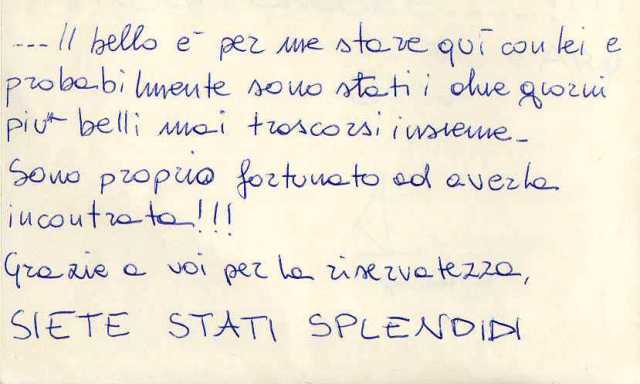 ....Il bello è per me stare quì con lei e
probabilmente sono stati i due giorni
più belli mai trascorsi insieme_
Sono proprio fortunato ad averla
incontrata!!!
Grazie a voi per la riservatezza,
SIETE STATI SPLENDIDI